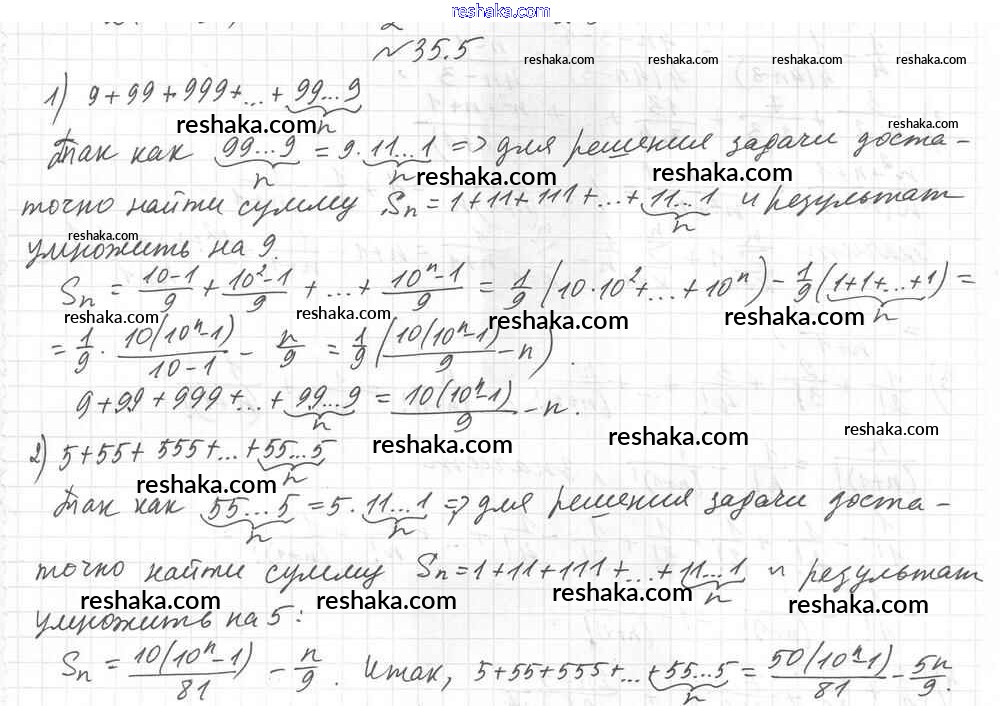 reshaka.com
№35.5
reshaka.com reshaka.com reshaka.com reshaka.com
1) 9+99+999+...+99...9
n
reshaka.com
reshaka.com
Так как 99...9 = 9·11...1 => для решения задачи доста-
n n
reshaka.com reshaka.com
точно найти сумму Sn = 1+11+111+...+11...1 и результат
n
reshaka.com
умножить на 9.
Sn = (10-1)/9 + (10²-1)/9 + ... + (10ⁿ-1)/9 = 1/9 (10·10²+...+10ⁿ) - 1/9 (1+1+...+1) =
n
reshaka.com reshaka.com reshaka.com reshaka.com
= 1/9 · 10(10ⁿ-1)/(10-1) - n/9 = 1/9 (10(10ⁿ-1)/9 - n).
9+99+999+...+99...9 = 10(10ⁿ-1)/9 - n.
n
reshaka.com reshaka.com reshaka.com
2) 5+55+555+...+55...5
n
reshaka.com reshaka.com
Так как 55...5 = 5·11...1 => для решения задачи доста-
n n
точно найти сумму Sn = 1+11+111+...+11...1 и результат
n
reshaka.com reshaka.com reshaka.com reshaka.com
умножить на 5:
Sn = 10(10ⁿ-1)/81 - n/9. Итак, 5+55+555+...+55...5 = 50(10ⁿ-1)/81 - 5n/9.
n